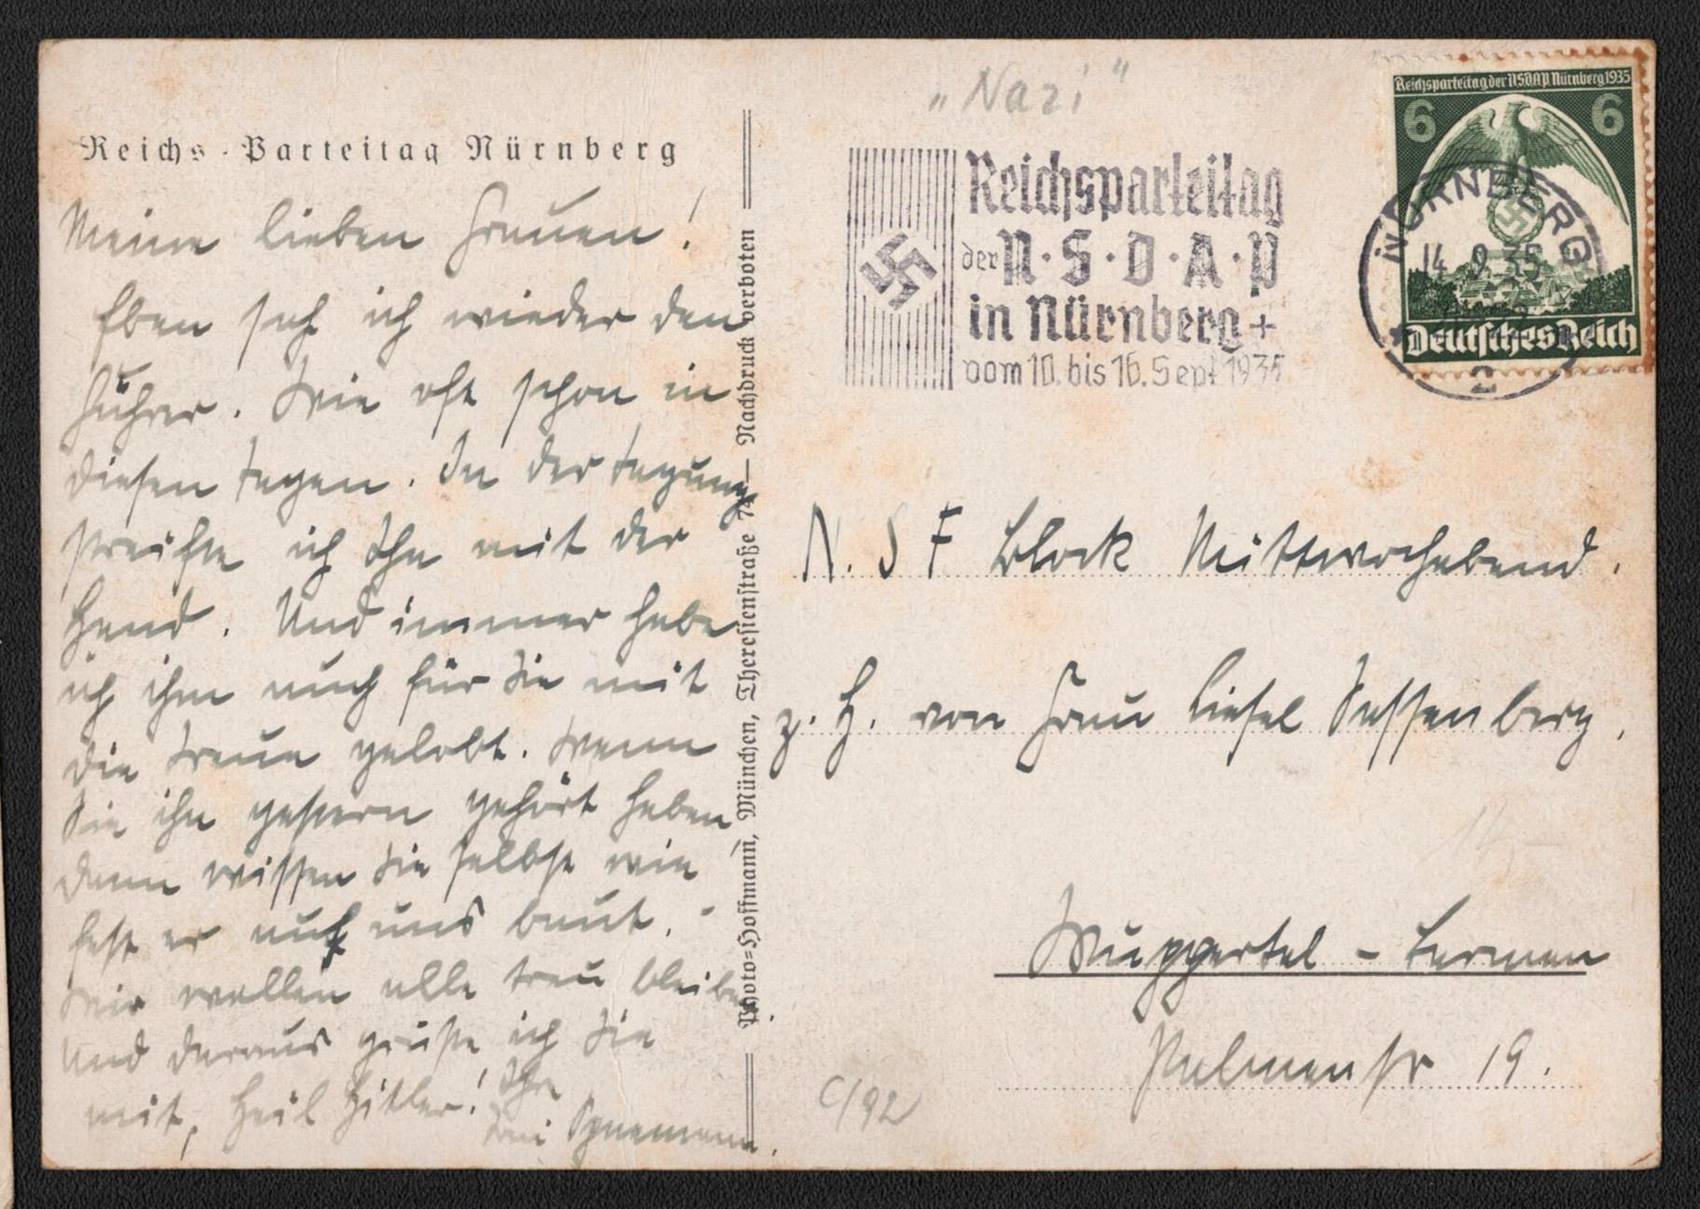 Reichs-Parteitag Nürnberg
Meine lieben Frauen!
Eben sah ich wieder den
Führer. Wie oft schon in
diesen Tagen. In der Tagung
streifte ich Ihn mit der
Hand. Und immer habe
ich ihm auch für Sie mit
die Treue gelobt. Wenn
Sie ihn gestern gehört haben
dann wissen Sie selbst wie
fest er auf uns baut. -
Wir wollen alle treu bleiben
Und daraus grüße ich Sie
mit, Heil Hitler! Ihre
Photo-Hoffmann, München, Theresienstraße 74 — Nachdruck verboten
„Nazi"
Reichsparteitag
der N·S·D·A·P
in Nürnberg +
vom 10. bis 16. Sept 1935
Reichsparteitag der NSDAP Nürnberg 1935
6 6
Deutsches Reich
NÜRNBERG
14.9.35
2
N. S F Block Mittwochabend.
z. H. von Frau Liesel Sassenberg.
Wuppertal - Barmen
Palmenstr 19.
C/92